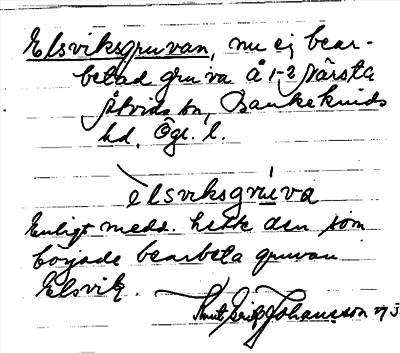 Elsviksgruvan, nu ej bear-
betad gruva å 1-2 Närsta
Åtvids sn, Bankekinds
hd. Ögl. l.
èlsviksgrúva
Enligt medd. hette den som
började bearbeta gruvan
Elsvik.
Knut Erik Johansson